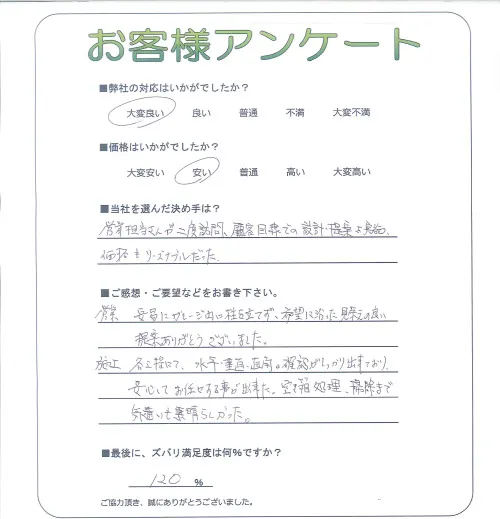 お客様アンケート
■弊社の対応はいかがでしたか？
大変良い 良い 普通 不満 大変不満
■価格はいかがでしたか？
大変安い 安い 普通 高い 大変高い
■当社を選んだ決め手は？
営業担当さんが二度訪問、顧客目線での設計・提案を実施。
価格もリーズナブルだった。
■ご感想・ご要望などをお書き下さい。
営業 安易にガレージ出口柱を立てず、希望に沿った見栄えの良い
提案ありがとうございました。
施工 各工程にて、水平・垂直・直角の確認がしっかり出来ており、
安心してお任せする事が出来た。空き箱処理、掃除まで
気遣いも素晴らしかった。
■最後に、ズバリ満足度は何％ですか？
120 ％
ご協力頂き、誠にありがとうございました。